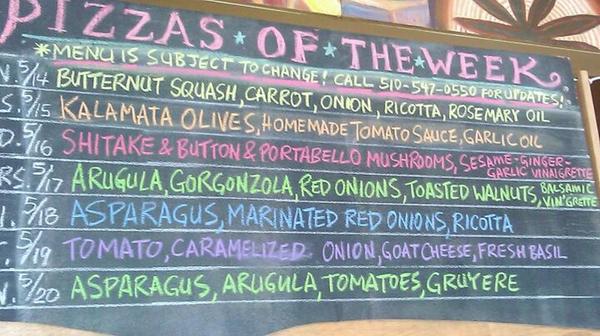 PIZZAS OF THE WEEK
*MENU IS SUBJECT TO CHANGE! CALL 510-547-0550 FOR UPDATES!
N. 5/14 BUTTERNUT SQUASH, CARROT, ONION, RICOTTA, ROSEMARY OIL
S. 5/15 KALAMATA OLIVES, HOMEMADE TOMATO SAUCE, GARLIC OIL
D. 5/16 SHITAKE & BUTTON & PORTABELLO MUSHROOMS, SESAME-GINGER-
GARLIC VINAIGRETTE
RS. 5/17 ARUGULA, GORGONZOLA, RED ONIONS, TOASTED WALNUTS, BALSAMIC
VIN'GRETTE
I. 5/18 ASPARAGUS, MARINATED RED ONIONS, RICOTTA
T. 5/19 TOMATO, CARAMELIZED ONION, GOAT CHEESE, FRESH BASIL
N. 5/20 ASPARAGUS, ARUGULA, TOMATOES, GRUYERE